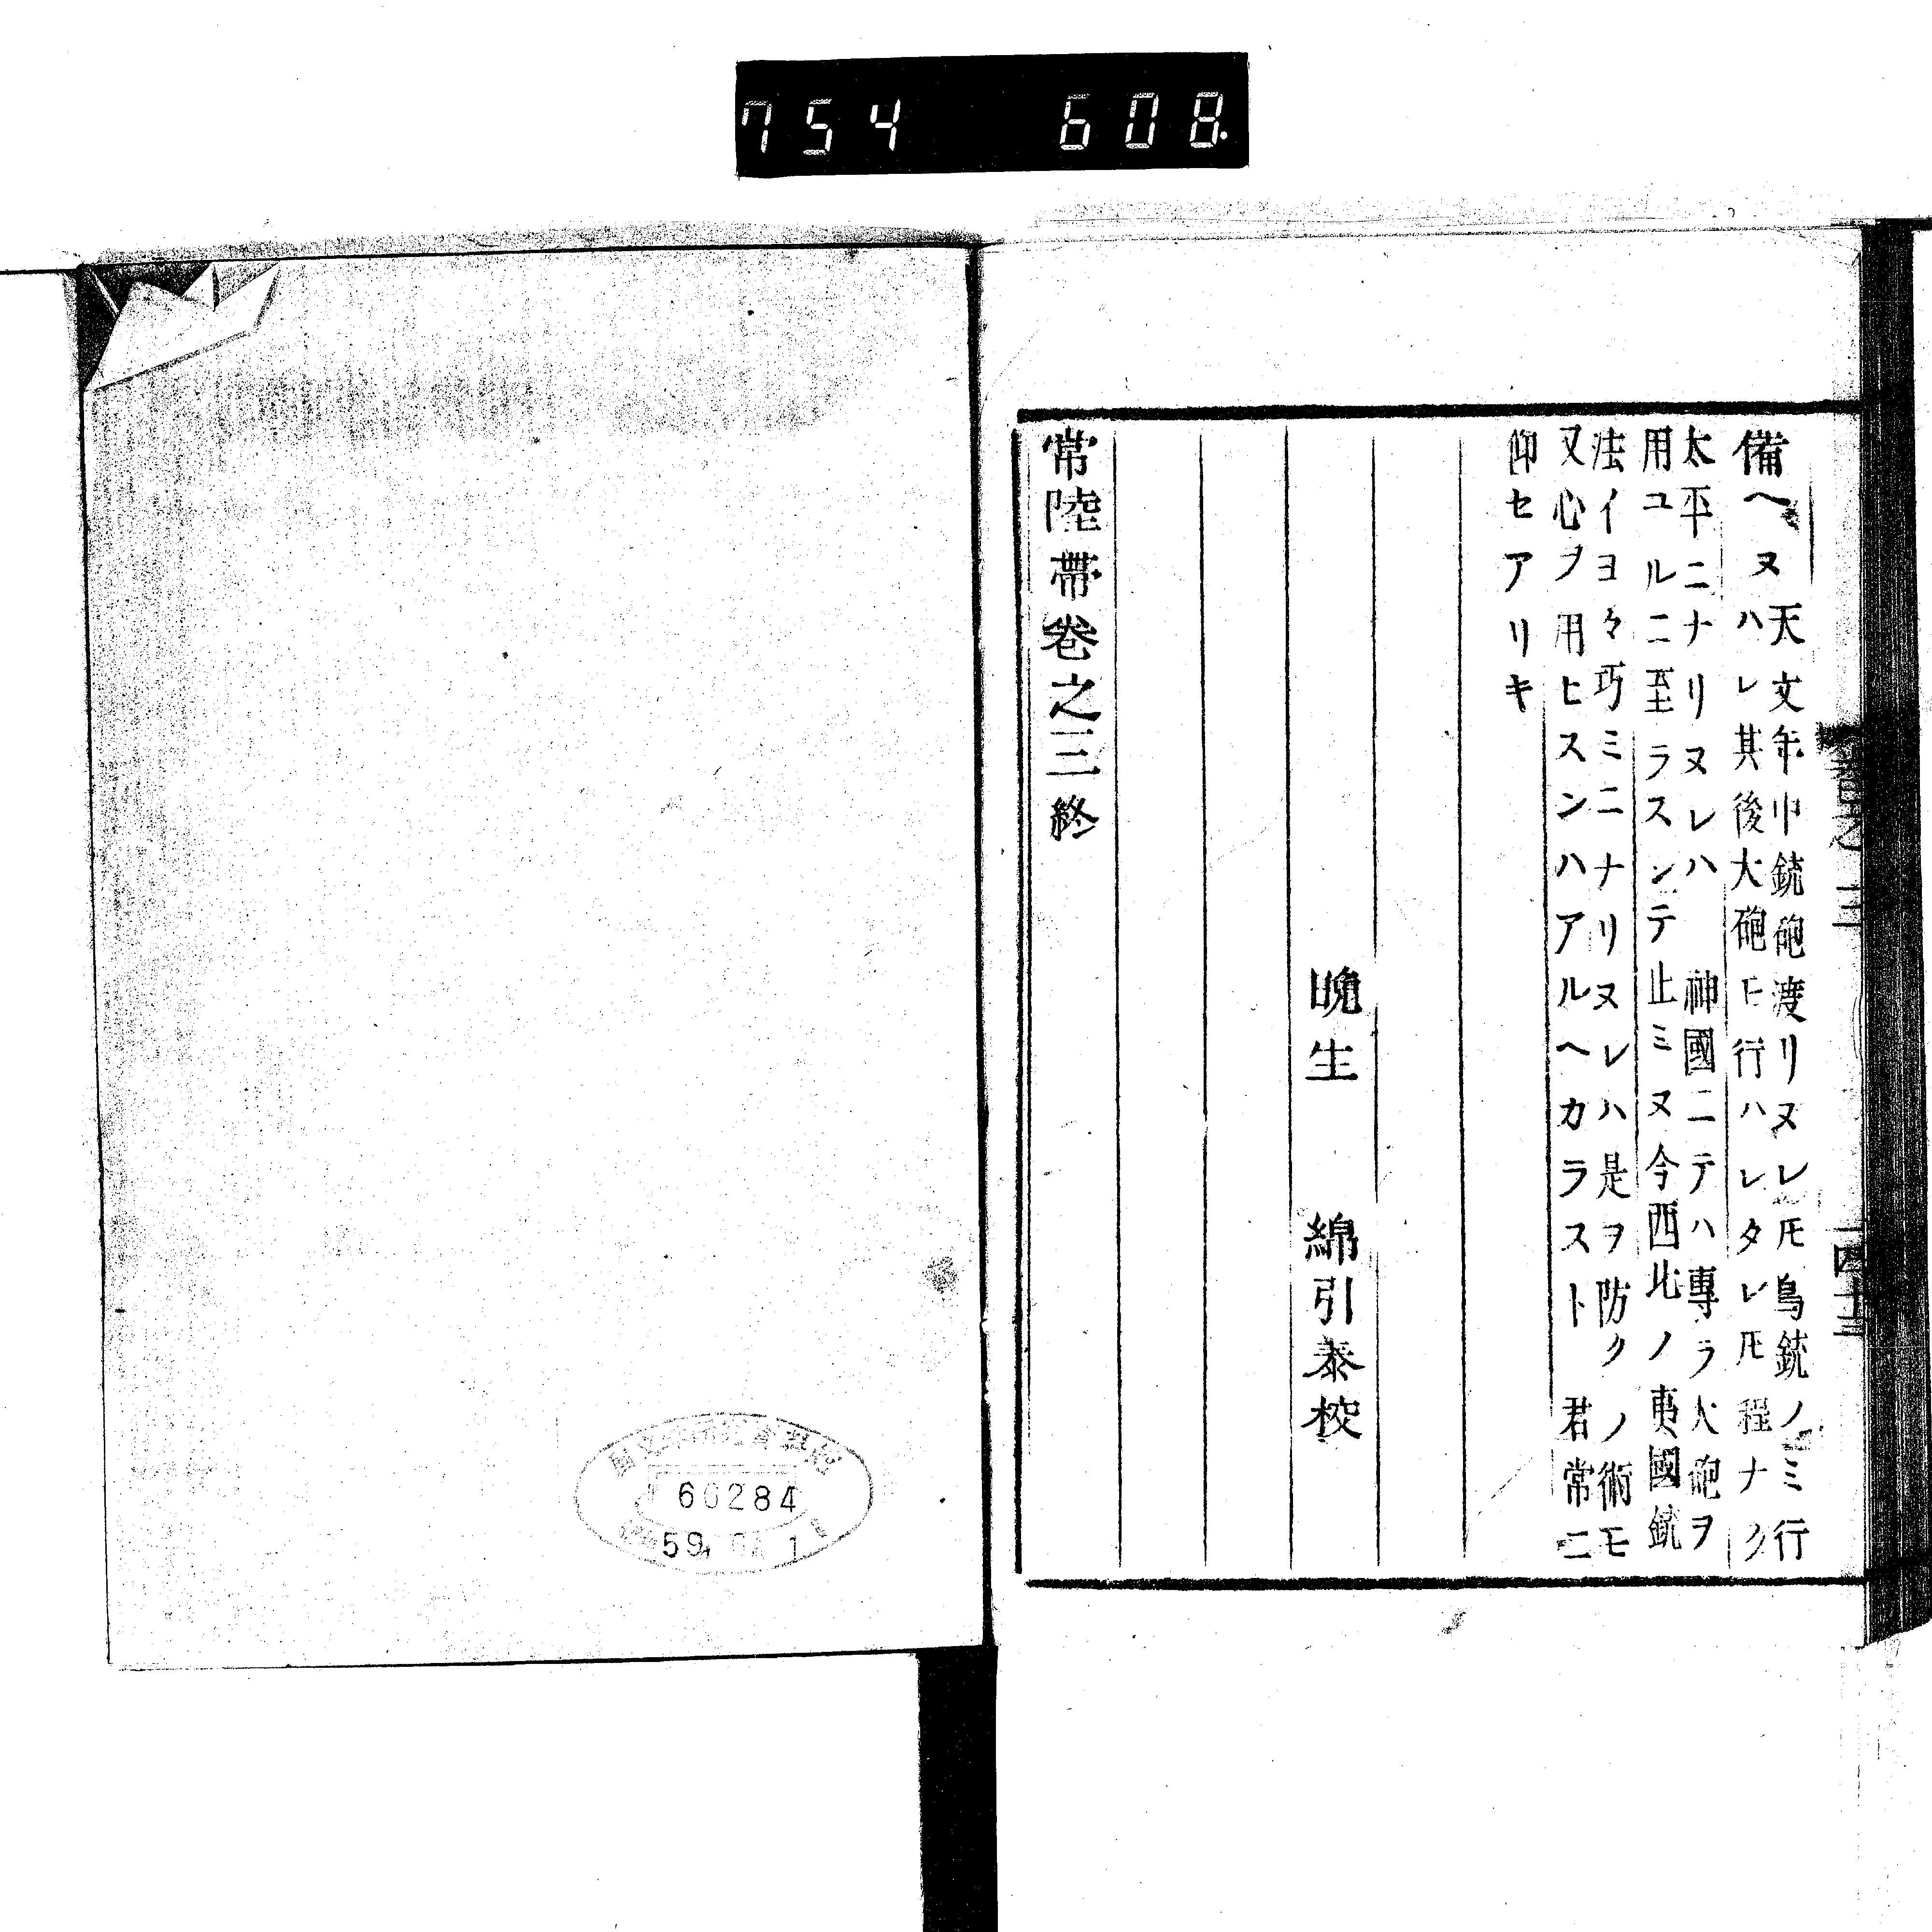 754 608
備ヘヌ
天文年中銃砲渡リヌレ𪜈鳥銃ノミ行
ハレ其後大砲モ行ハレタレ𪜈程ナク
太平ニナリヌレハ 神國ニテハ專ラ大砲ヲ
用ユルニ至ラスンテ止ミヌ今西北ノ夷國銃
法イヨ々巧ミニナリヌレハ是ヲ防クノ術モ
又心ヲ用ヒスンハアルヘカラスト 君常ニ
仰セアリキ
晩生 綿引泰校
常陸帶卷之三終
60284